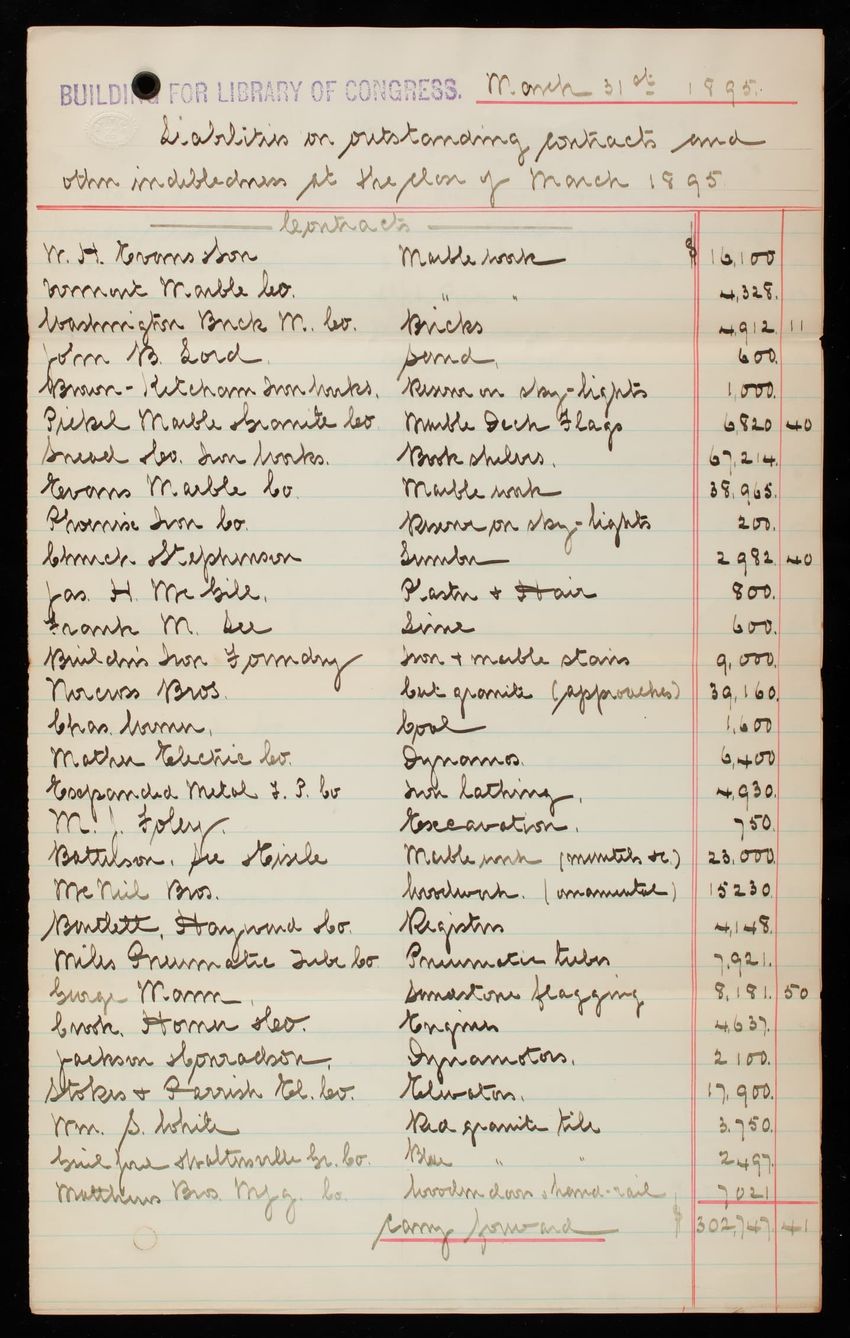 BUILDING FOR LIBRARY OF CONGRESS. March 31st 1895.
Liabilities on outstanding contracts and
other indebtedness at the close of March 1895
Contracts
W. H. Evans & Son Marble work $ 16,100
Vermont Marble Co. " " 4,328.
Washington Brick M. Co. Bricks 4,912 11
John B. Lord. Sand, 600.
Brown-Ketcham Iron Works. Reserve on sky-lights 1,000.
Pickel Marble & Granite Co. Marble Deck Flags 6,820 40
Snead & Co. Iron Works. Book shelves. 67,214.
Evans Marble Co. Marble work 38,965.
Phoenix Iron Co. Reserve on sky-lights 200.
Church & Stephenson Lumber 2982 40
Jas. H. McGill, Plaster + Hair 800.
Frank M. Lee Lime 600.
Builders Iron Foundry Iron + marble stairs 9,000.
Norcross Bros. Cut granite (approaches) 39,160.
Chas. Werner, Coal 1,600
Mather Electric Co. Dynamos. 6,400
Expanded Metal F. P. Co Iron lathing, 4,930.
M. J. Foley. Excavation. 750.
Batterson, See & Eisele Marble work (mantels &c.) 23,000.
McNeil Bros. Woodwork. (ornamental) 15230.
Bartlett, Hayward & Co. Registers 4,148.
Miles Pneumatic Tube Co Pneumatic tubes 7,921.
George Mann, Sandstone flagging 8,181. 50
Crook, Horner & Co. Engines 4,637.
Jackson & Conradson, Dynamotors. 2100.
Stokes + Parrish El. Co. Elevators. 17,900.
Wm. S. White Red granite tile 3,750.
Guilford & Waltersville Gr. Co. Blue " " 2497.
Matthews Bros. Mfg. Co. Wooden doors & hand-rail, 7021
Carry forward $ 302,747. 41